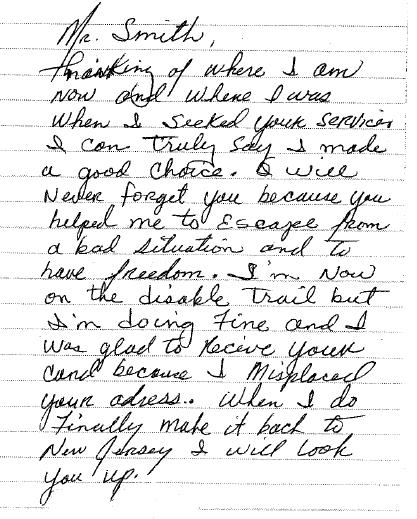 Mr. Smith,
thinking of where I am
now and where I was
when I seeked your services
I can truly say I made
a good choice. I will
never forget you because you
helped me to Escape from
a bad situation and to
have freedom. I'm now
on the disable trail but
I'm doing fine and I
was glad to receive your
card because I misplaced
your adress.. When I do
Finally make it back to
New Jersey I will look
you up.